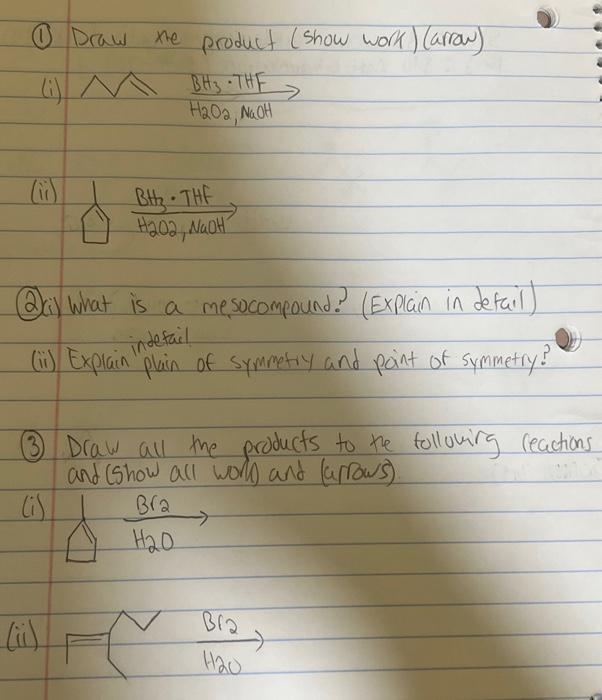 ① Draw the product (show work) (arrow)
(i) BH3 · THF
H2O2, NaOH
(ii) BH3 · THF
H2O2, NaOH
②(i) What is a mesocompound? (Explain in detail)
in detail
(ii) Explain plain of symmetry and point of symmetry?
③ Draw all the products to the following reactions
and (show all work) and (arrows).
(i) Br2
H2O
(ii) Br2
H2O